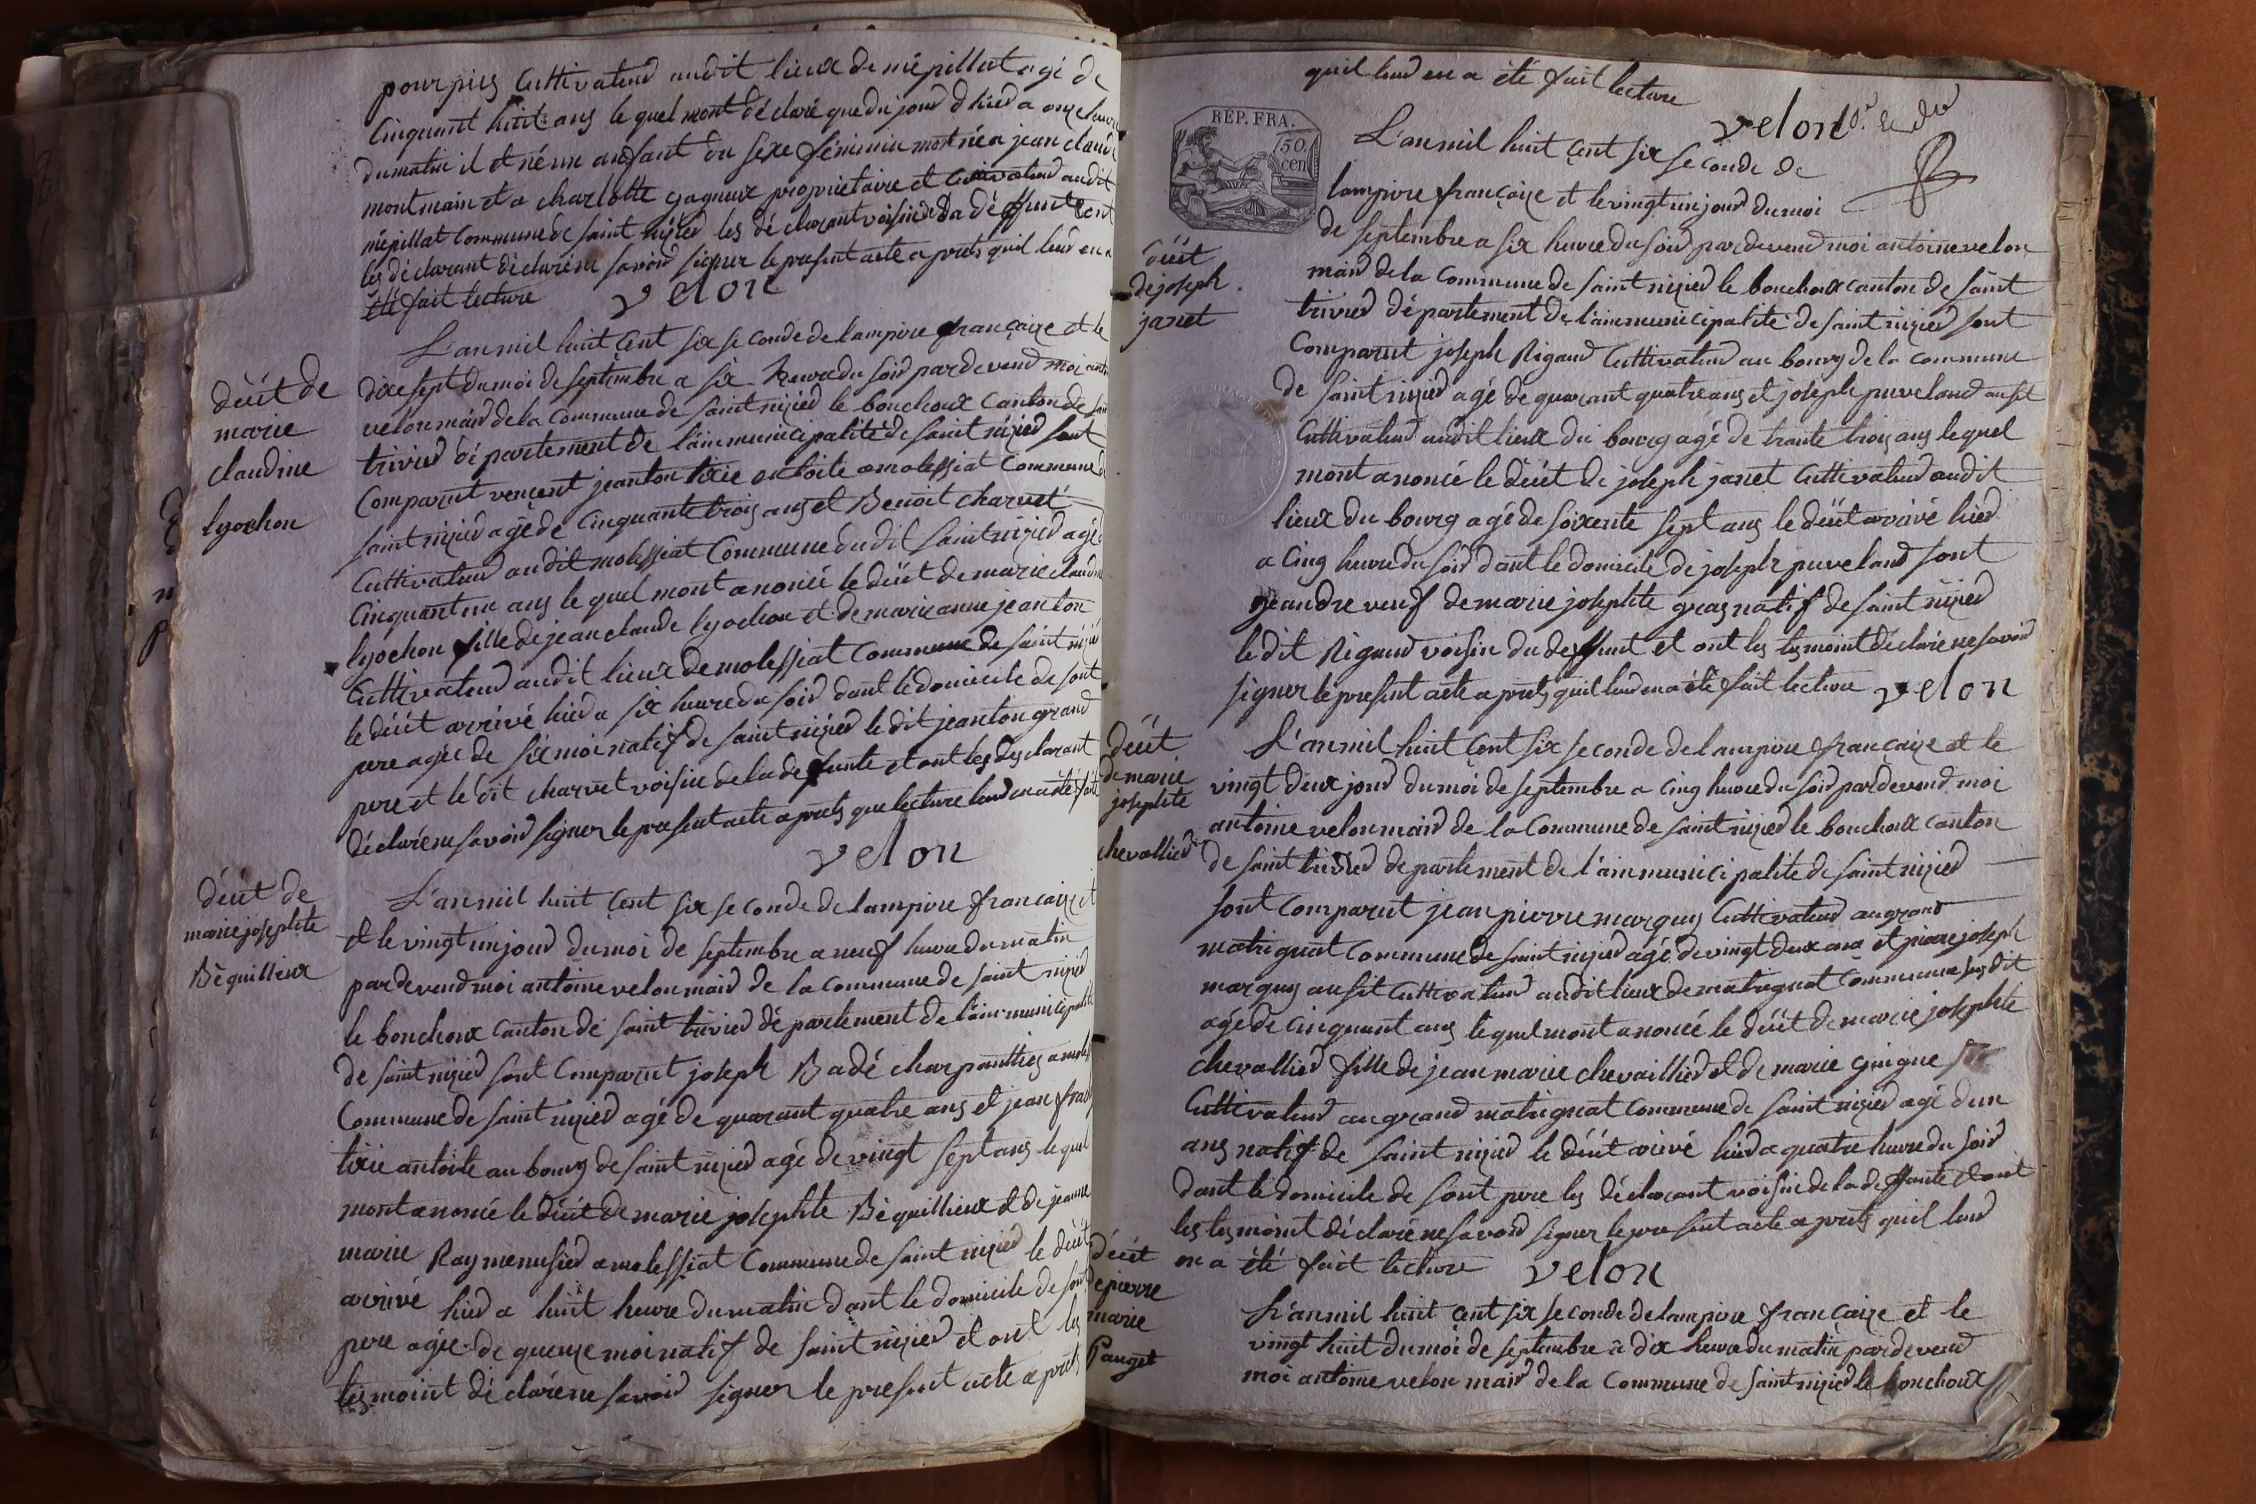 pourpies Cultivateur audit lieux de mépillat agé de
Cinquant huit ans le quel mont déclaré que du jour d hier a onze heure
dumatin il et né un anfant du sexe féminin mort né a jean claude
montmain et a charlotte gagneux propriétaire et Cultivateur audit
mépillat Commune de saint nizier les déclarant voisin de la déffunte et ont
les déclarant déclaré ne savoir signer le present acte a prets quil leur en a
été fait lecture velon
décét de
marie
claudine
lyochon
L'an mil huit Cent six se conde de lampire française et le
dixe sept du moi de septembre a six heure du soir par devend moi antoine
velon maire de la Commune de saint nizier le bouchoux Canton de saint
trivier département de l'ain municipalité de saint nizier sont
Comparut vencent jeanton tixie en toile a molessiat Commune de
saint nizier agé de Cinquante trois ans et Benoit charvet
Cultivateur audit molessiat Commune du dit saint nizier agé de
Cinquant un ans le quel mont anoncé le décét de marie claudine
lyochon fille de jean claude lyochon et de marie anne jeanton
Cultivateur audit lieux de molessiat Commune de saint nizier
le décét arrivé hier a six heure du soir dant le domicile de sont
pere agée de six moi natif de saint nizier le dit jeanton grand
pere et le dit charvet voisin de la defunte et ont les déclarant
déclaré ne savoir signer le present acte a prets que lecture leur en a été fait
velon
décét de
marie josephte
Béquillieux
L'an mil huit Cent six se conde de lampire française et
et le vingt un jour du moi de septembre a neuf heure du matin
par devend moi antoine velon maire de la Commune de saint nizier
le bouchoux Canton de saint trivier département de l'ain municipalité
de saint nizier sont Comparut joseph Badé charpanttier a
Commune de saint nizier agé de quarant quatre ans et jean
tixie an toile au bourg de saint nizier agé de vingt sept ans le quel
mont anoncé le décét de marie josephte Béquillieux et de jeanne
marie Ray menusier a molessiat Commune de saint nizier le décét
arrivé hier a huit heure du matin dant le domicile de sont
pere agée de quenze moi natif de saint nizier et ont les
tesmoint déclaré ne savoir signer le present acte a prets
quil leur en a été fait lecture
velon
RÉP. FRA.
50
cen
décét
de joseph
janet
L'an mil huit cent six se conde de
lampire française et le vingt un jour du moi
de septembre a six heure du soir par devend moi antoine velon
maire de la Commune de saint nizier le bouchoux canton de saint
trivier département de l'ain municipalité de saint nizier sont
Comparut joseph Rigaud Cultivateur au bourg de la commune
de saint nizier agé de quarant quatre ans et joseph puveland ausit
Cultivateur audit lieux du bourg agé de trante trois ans le quel
mont anoncé le décét de joseph janet Cultivateur audit
lieux du bourg agé de soixente sept ans le décét arivé hier
a Cinq heure du soir dant le domicile de joseph puveland sont
geandre veuf de marie josephte gras natif de saint nizier
le dit Rigaud voisin du deffunt et ont les tesmoint déclaré ne savoir
signer le present acte a prets quil leur en a été fait lecture velon
décét
de marie
josephte
chevallier
L'an mil huit Cent six se conde de lampire française et le
vingt deux jour du moi de septembre a Cinq heure du soir par devend moi
antoine velon maire de la Commune de saint nizier le bouchoux canton
de saint trivier département de l'ain municipalité de saint nizier
sont Comparut jean pierre marguy Cultivateur au grand
matignat Commune de saint nizier agé de vingt deux ans et pierre joseph
marguy ausit Cultivateur audit lieux de matignat Commune susdit
agé de Cinquant ans le quel mont anoncé le décét de marie josephte
chevallier fille de jean marie chevaillier et de marie guigue
Cultivateur au grand matignat Commune de saint nizier agé d'un
ans natif de saint nizier le décét arivé hier a quatre heure du soir
dant le domicile de sont pere les déclarant voisin de la deffunte et ont
les tesmoint déclaré ne savoir signer le present acte a prets quil leur
en a été fait lecture velon
décét
de pierre
marie
Pauget
L'an mil huit Cent six se conde de lampire française et le
vingt huit du moi de septembre a dix heure du matin par devend
moi antoine velon maire de la Commune de saint nizier le bouchoux